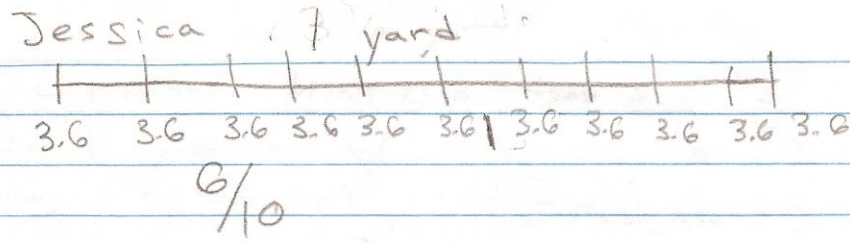 Jessica . 1 yard
3.6 3.6 3.6 3.6 3.6 3.6 3.6 3.6 3.6 3.6 3.6
6/10